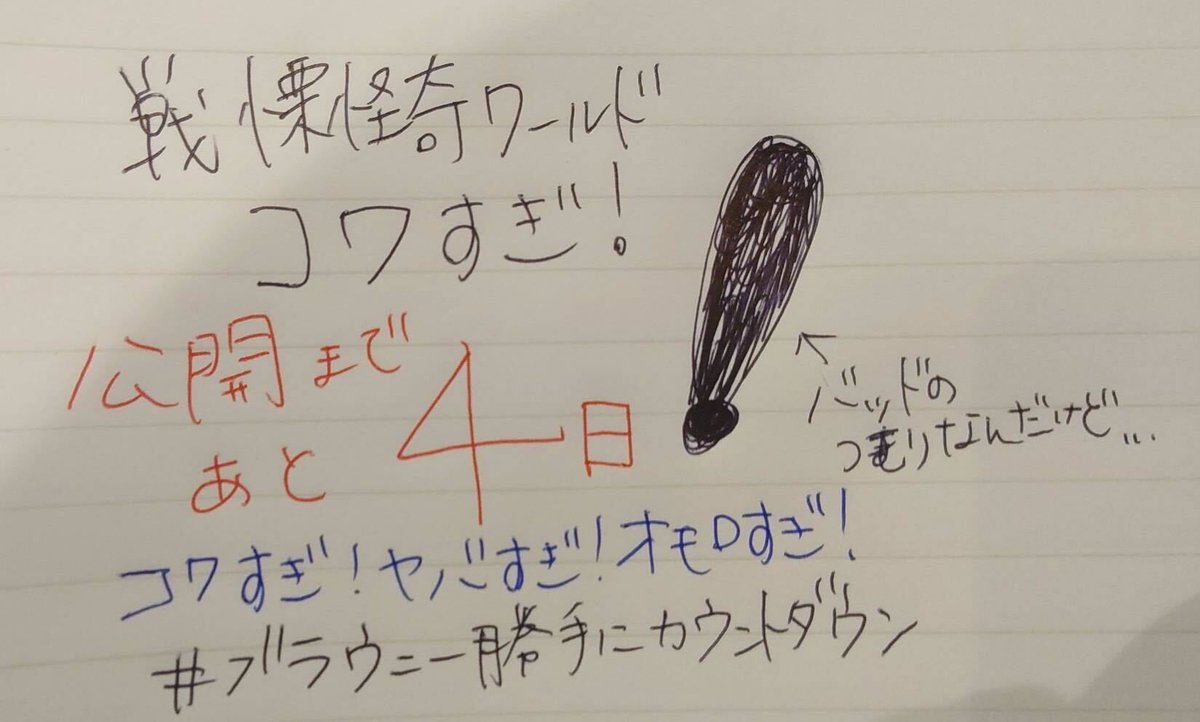 戦慄怪奇ワールド
コワすぎ!
公開まで
あと4日
←バッドの
つもりなんだけど…
コワすぎ!ヤバすぎ!オモロすぎ!
#ブラウニー勝手にカウントダウン